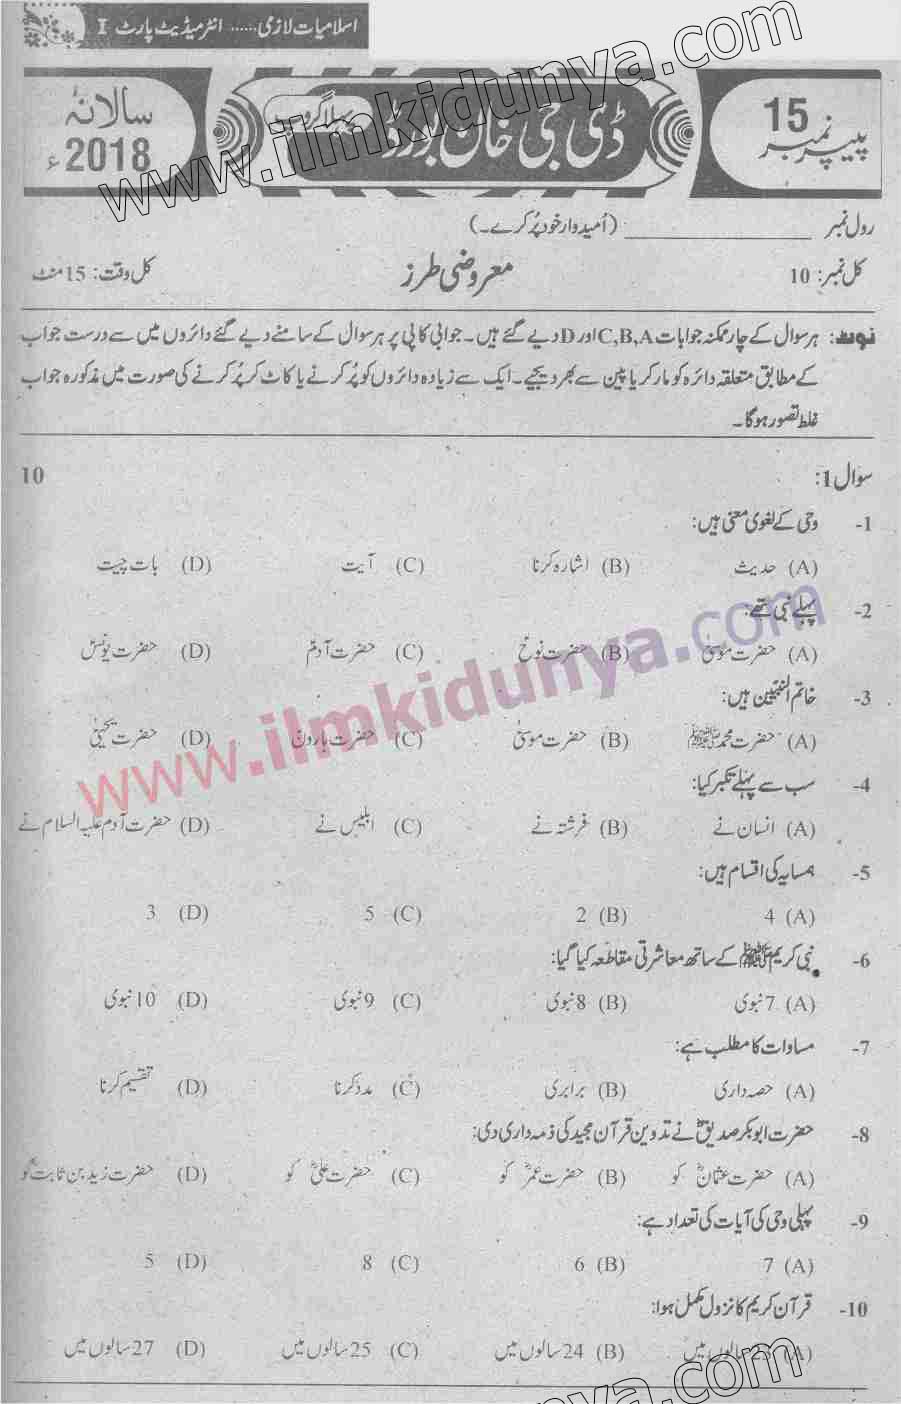 اسلامیات لازمی...... انٹرمیڈیٹ پارٹ I
پیپر نمبر 15
ڈی جی خان بورڈ
پہلا گروپ
سالانہ 2018ء
رول نمبر ____________________ (اُمیدوار خود پُر کرے۔)
کل نمبر: 10 معروضی طرز کل وقت: 15 منٹ
نوٹ: ہر سوال کے چار ممکنہ جوابات C,B,A اور D دیے گئے ہیں۔ جوابی کاپی پر ہر سوال کے سامنے دیے گئے دائروں میں سے درست جواب
کے مطابق متعلقہ دائرہ کو مارکر یا پین سے بھر دیجیے۔ ایک سے زیادہ دائروں کو پُر کرنے یا کاٹ کر پُر کرنے کی صورت میں مذکورہ جواب
غلط تصور ہوگا۔
سوال 1: 10
1- وحی کے لغوی معنی ہیں:
(A) حدیث (B) اشارہ کرنا (C) آیت (D) بات چیت
2- پہلے نبی تھے:
(A) حضرت موسیٰؑ (B) حضرت نوحؑ (C) حضرت آدمؑ (D) حضرت یونسؑ
3- خاتم النبیین ہیں:
(A) حضرت محمد ﷺ (B) حضرت موسیٰؑ (C) حضرت ہارونؑ (D) حضرت یحییٰؑ
4- سب سے پہلے تکبر کیا:
(A) انسان نے (B) فرشتہ نے (C) ابلیس نے (D) حضرت آدم علیہ السلام نے
5- ہمسایہ کی اقسام ہیں:
(A) 4 (B) 2 (C) 5 (D) 3
6- نبی کریم ﷺ کے ساتھ معاشرتی مقاطعہ کیا گیا:
(A) 7 نبوی (B) 8 نبوی (C) 9 نبوی (D) 10 نبوی
7- مساوات کا مطلب ہے:
(A) حصہ داری (B) برابری (C) مدد کرنا (D) تقسیم کرنا
8- حضرت ابوبکر صدیقؓ نے تدوین قرآن مجید کی ذمہ داری دی:
(A) حضرت عثمانؓ کو (B) حضرت عمرؓ کو (C) حضرت علیؓ کو (D) حضرت زید بن ثابتؓ کو
9- پہلی وحی کی آیات کی تعداد ہے:
(A) 7 (B) 6 (C) 8 (D) 5
10- قرآن کریم کا نزول مکمل ہوا:
(A) 23 سالوں میں (B) 24 سالوں میں (C) 25 سالوں میں (D) 27 سالوں میں
www.ilmkidunya.com
www.ilmkidunya.com
www.ilmkidunya.com